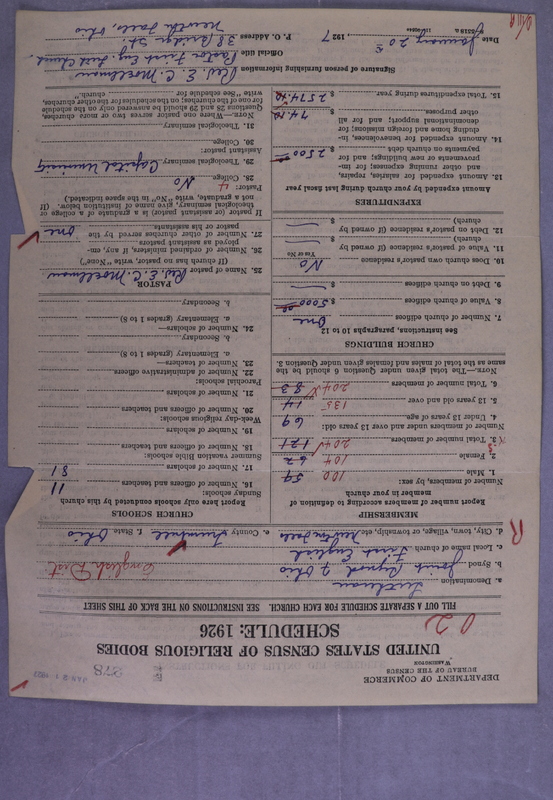 DEPARTMENT OF COMMERCE
BUREAU OF THE CENSUS
WASHINGTON
278
JAN 21 1927
UNITED STATES CENSUS OF RELIGIOUS BODIES
SCHEDULE: 1926
FILL OUT A SEPARATE SCHEDULE FOR EACH CHURCH. SEE INSTRUCTIONS ON THE BACK OF THIS SHEET
a. Denomination Lutheran
b. Synod Joint Synod of Ohio English Dist
c. Local name of church First English
d. City, town, village, or township, etc. Newton Falls e. County Trumbull f. State Ohio
R
MEMBERSHIP
Report number of members according to definition of member in your church
Number of members, by sex:
1. Male 100 59
2. Female 104 62
3. Total number of members 204 121
Number of members under and over 13 years old:
4. Under 13 years of age 69
5. 13 years old and over 135 14
6. Total number of members 204 83
NOTE.—The total given under Question 6 should be the same as the total of males and females given under Question 3.
CHURCH BUILDINGS
See instructions, paragraphs 10 to 12
7. Number of church edifices One
8. Value of church edifices $ 5000 00
9. Debt on church edifices $
10. Does church own pastor's residence No
Yes or No
11. Value of pastor's residence (if owned by the church) $
12. Debt on pastor's residence (if owned by the church) $
EXPENDITURES
Amount expended by your church during last fiscal year
13. Amount expended for salaries, repairs, and other running expenses; for improvements on own buildings; and for payments on church debt $ 2500
14. Amount expended for benevolences, including home and foreign missions; for denominational support; and for all other purposes $ 74.12
15. Total expenditures during year $ 2574.12
CHURCH SCHOOLS
Report here only schools conducted by this church
Sunday schools:
16. Number of officers and teachers 11
17. Number of scholars 81
Summer vacation Bible schools:
18. Number of officers and teachers
19. Number of scholars
Week-day religious schools:
20. Number of officers and teachers
21. Number of scholars
Parochial schools:
22. Number of administrative officers
23. Number of teachers—
a. Elementary (grades 1 to 8)
b. Secondary
24. Number of scholars—
a. Elementary (grades 1 to 8)
b. Secondary
PASTOR
25. Name of pastor Rev. E. C. Moellman
(If church has no pastor, write "None")
26. Number of ordained ministers, if any, employed as assistant pastors
27. Number of other churches served by the pastor or his assistants One
If pastor (or assistant pastor) is a graduate of a college or theological seminary, give name of institution below. (If not a graduate, write "No" in the space indicated.)
Pastor: 4
28. College No
29. Theological seminary Capital University
Assistant pastor:
30. College
31. Theological seminary
NOTE.—Where one pastor serves two or more churches, Questions 28 and 29 should be answered only on the schedule for one of the churches; on the schedules for the other churches, write "See schedule for church."
Signature of person furnishing information Rev. E. C. Moellman
Official title Pastor First Eng. Luth Church
P. O. Address 38 Bridge St.
Newton Falls, Ohio
Date January 20th, 1927